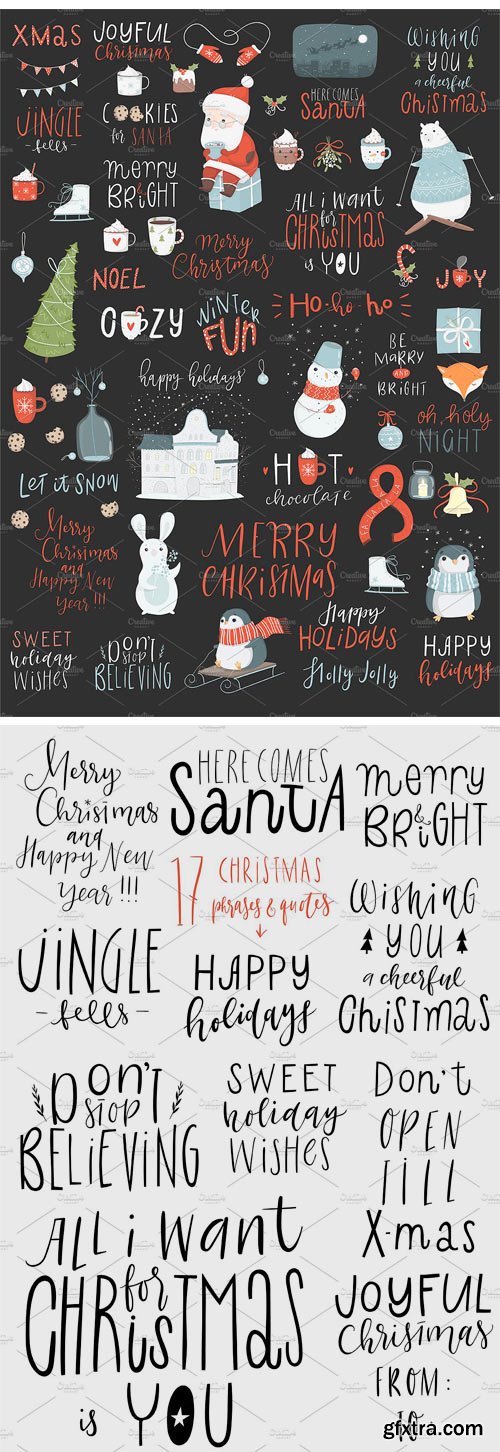 XMAS
JOYFUL
Christmas
HERE COMES
SANTA
WiSHiNG
YOU
a cheerful
CHiSTMAS
JiNGLE
- fells -
COOKiES
for SANTA
merry
& BRiGHT
ALL i WANT
for
CHRiSTMAS
is YOU
Merry
Christmas
NOEL
JOY
COZY
WiNTER
FUN
Ho-ho-ho
BE
MARRY
AND
BRiGHT
happy holidays
oh, holy
NiGHT
LET iT SNOW
HOT
chocolate
LA LA LA LA
Merry
Christmas
and
Happy New
Year !!!
MERRY
CHRiSTMAS
Happy
HOLiDAYS
Holly Jolly
SWEET
holiday
WiSHES
DON'T
STOP
BELiEViNG
HAPPY
holidays
Merry
Christmas
and
Happy New
Year !!!
HERE COMES
SANTA
merry
&
BRiGHT
17 CHRiSTMAS
phrases & quotes
WiSHiNG
YOU
a cheerful
CHiSTMAS
JiNGLE
- fells -
HAPPY
holidays
DON'T
STOP
BELiEViNG
SWEET
holiday
WiSHES
Don't
OPEN
TiLL
X-mas
ALL i WANT
for
CHRiSTMAS
is YOU
JOYFUL
Christmas
FROM:
TO
gfxtra.com